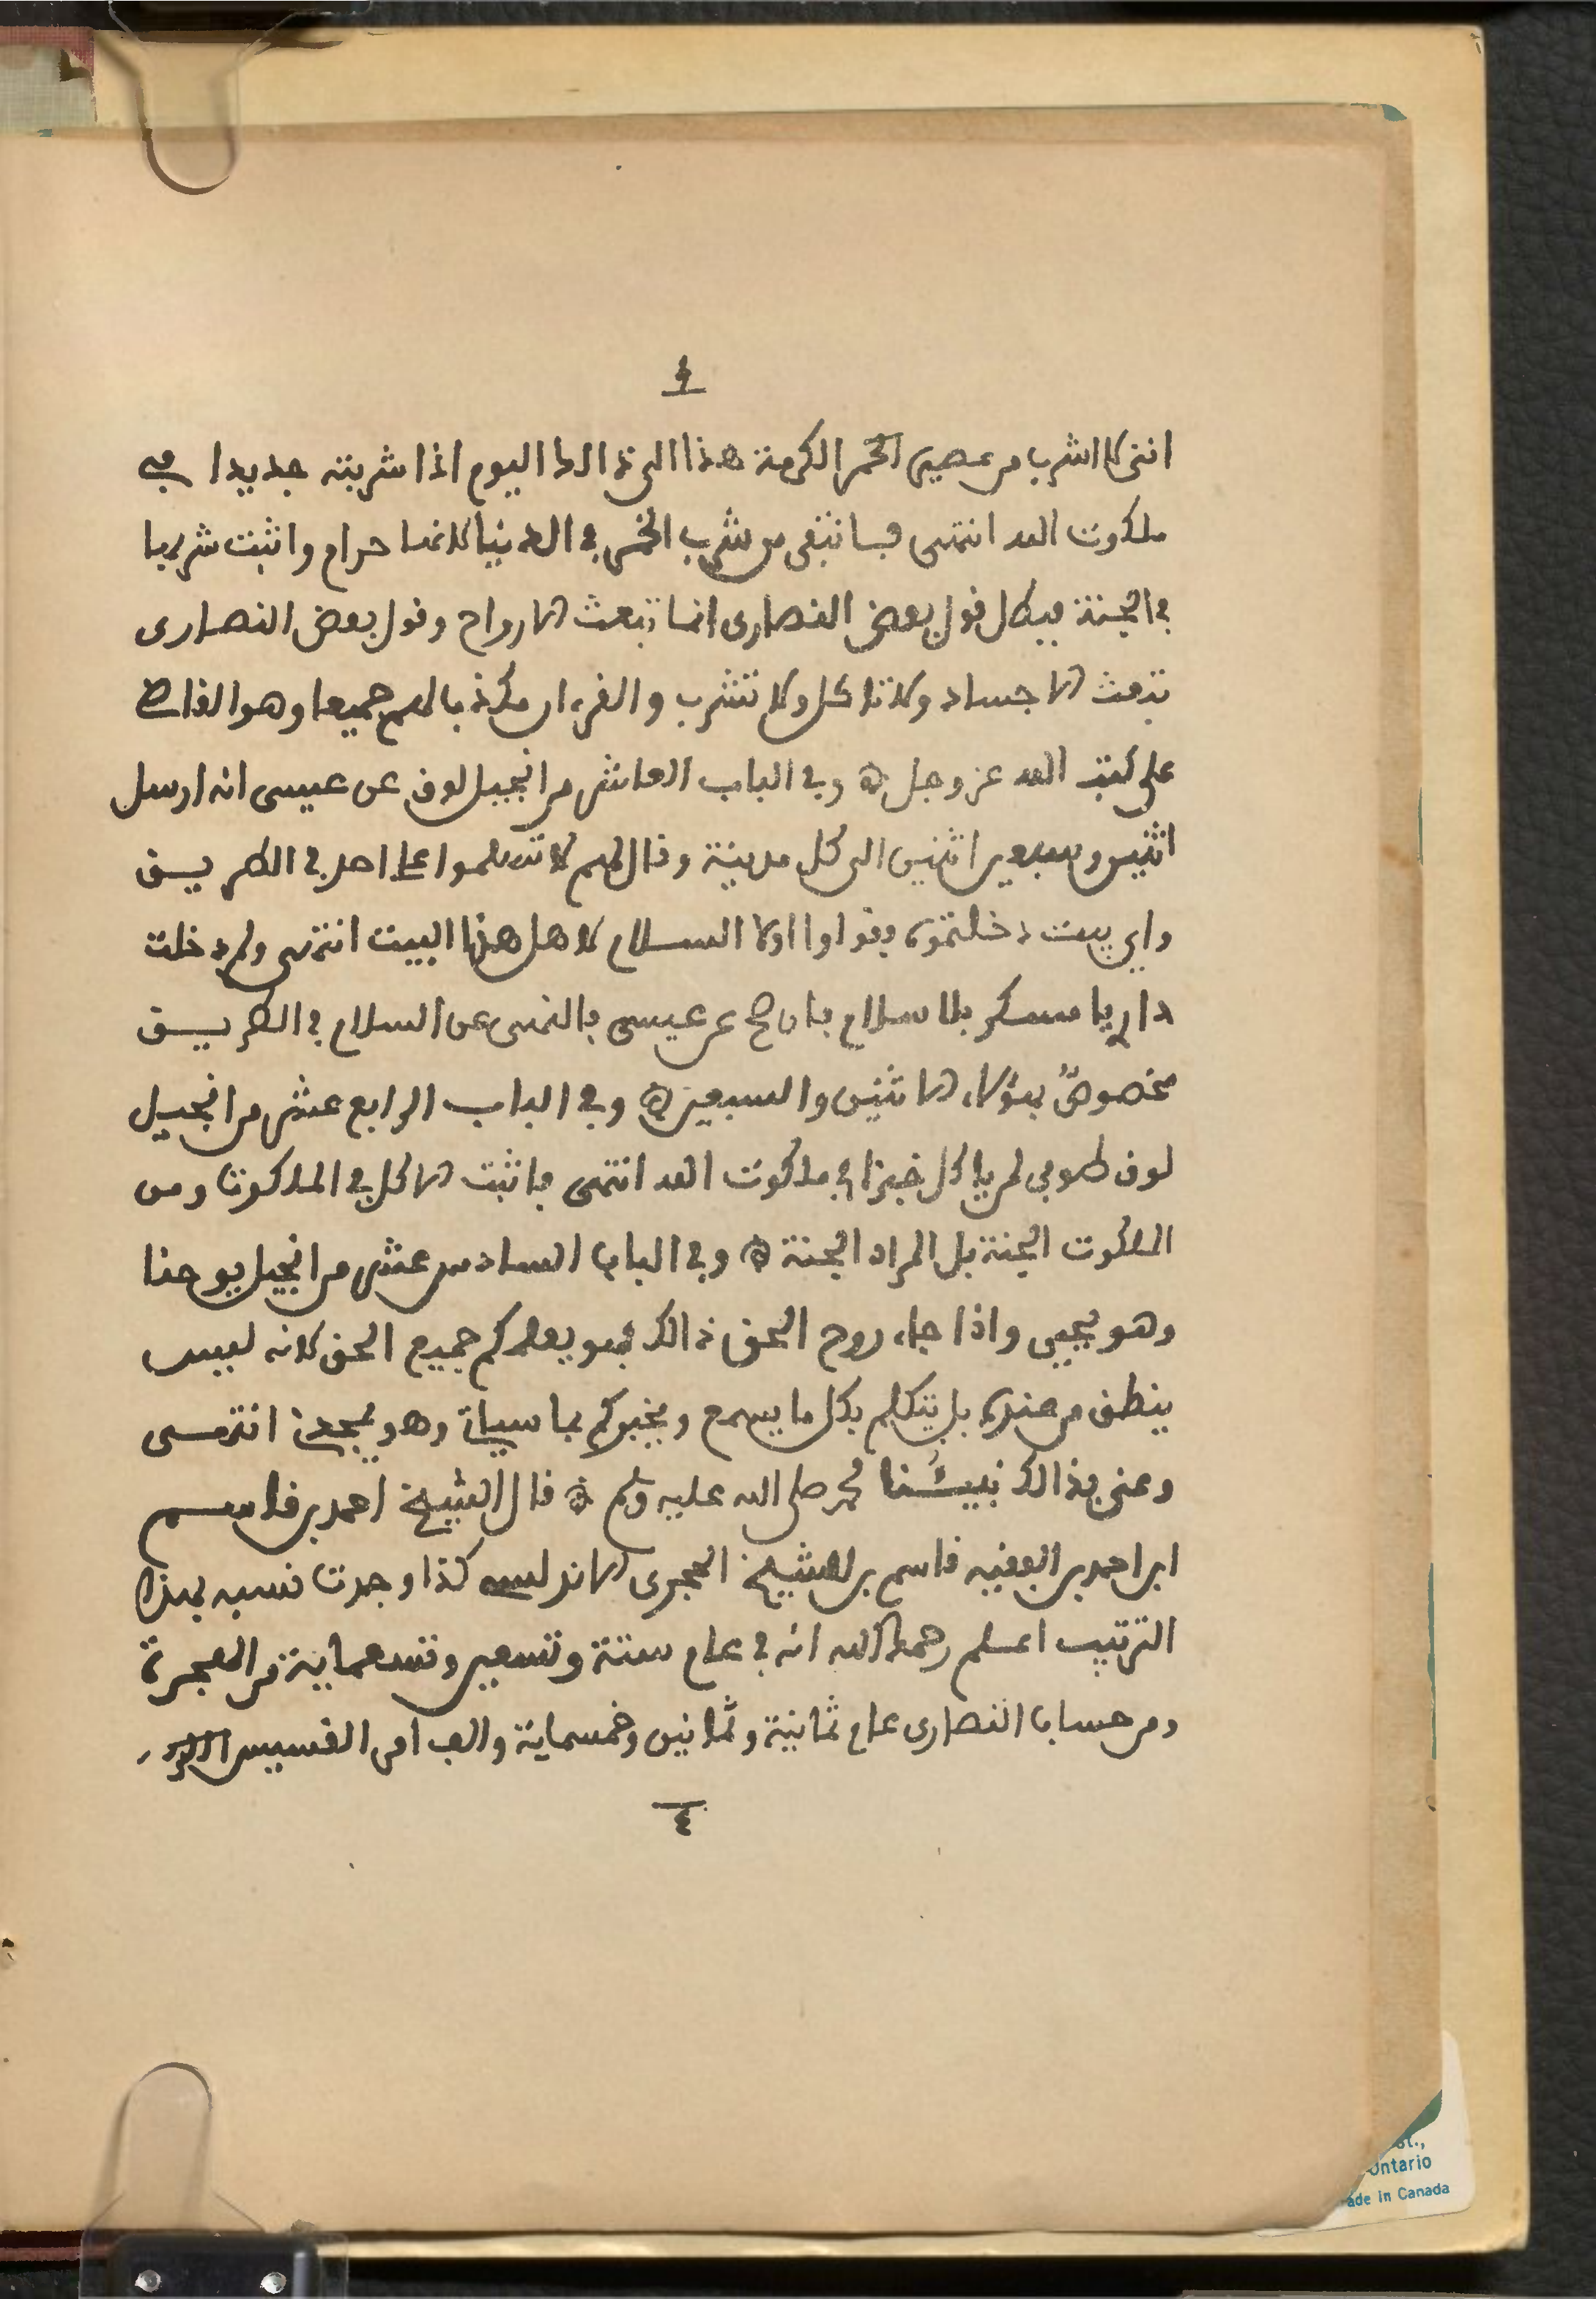 ٤
انني لا اشرب من عصير الخمر الكرمة هذا الى ذالك اليوم اذا شربته جديدا في
ملكوت الله انتهى فانتفى من شرب الخمر في الدنيا لانها حرام واثبت شربها
في الجنة فبطل قول بعض النصارى انما تبعث الارواح وقول بعض النصارى
تبعث الاجساد ولا تاكل ولا تشرب والقرءان مكذبا لهم جميعا وهو القاضي
على كتب الله عز وجل ۞ وفي الباب العاشر من انجيل لوق عن عيسى انه ارسل
اثنين وسبعين اثنين الى كل مدينة وقال لهم لا تسلموا على احد في الطريق
واي بيت دخلتموه فقولوا اولا السلام لاهل هذا البيت انتهى ولم دخلت
دار يا مسكر بلا سلام بان صح عن عيسى بالنهي عن السلام في الطريق
مخصوصٌ بهؤلاء الاثنين والسبعين ۞ وفي الباب الرابع عشر من انجيل
لوق طوبى لمن ياكل خبزا في ملكوت الله انتهى فاثبت الاكل في الملكوت ومن
الملكوت الجنة بل المراد الجنة ۞ وفي الباب السادس عشر من انجيل يوحنا
وهو يحيى واذا جاء روح الحق ذالك فهو يعلمكم جميع الحق لانه ليس
ينطق من عنده بل يتكلم بكل ما يسمع ويخبركم بما سياتي وهو يمجدني انتهى
وعنى بذالك نبيُّنا محمد صلى الله عليه وسلم ۞ قال الشيخ احمد بن قاسم
ابن احمد بن الفقيه قاسم بن الشيخ الحجري الاندلسي كذا وجدت نسبه بهذا
الترتيب اعلم رحمك الله انه في عام ستة وتسعين وتسعماية من الهجرة
ومن حساب النصارى عام ثمانية وثمانين وخمسماية والف امر القسيس
٤
st.,
Ontario
ade in Canada